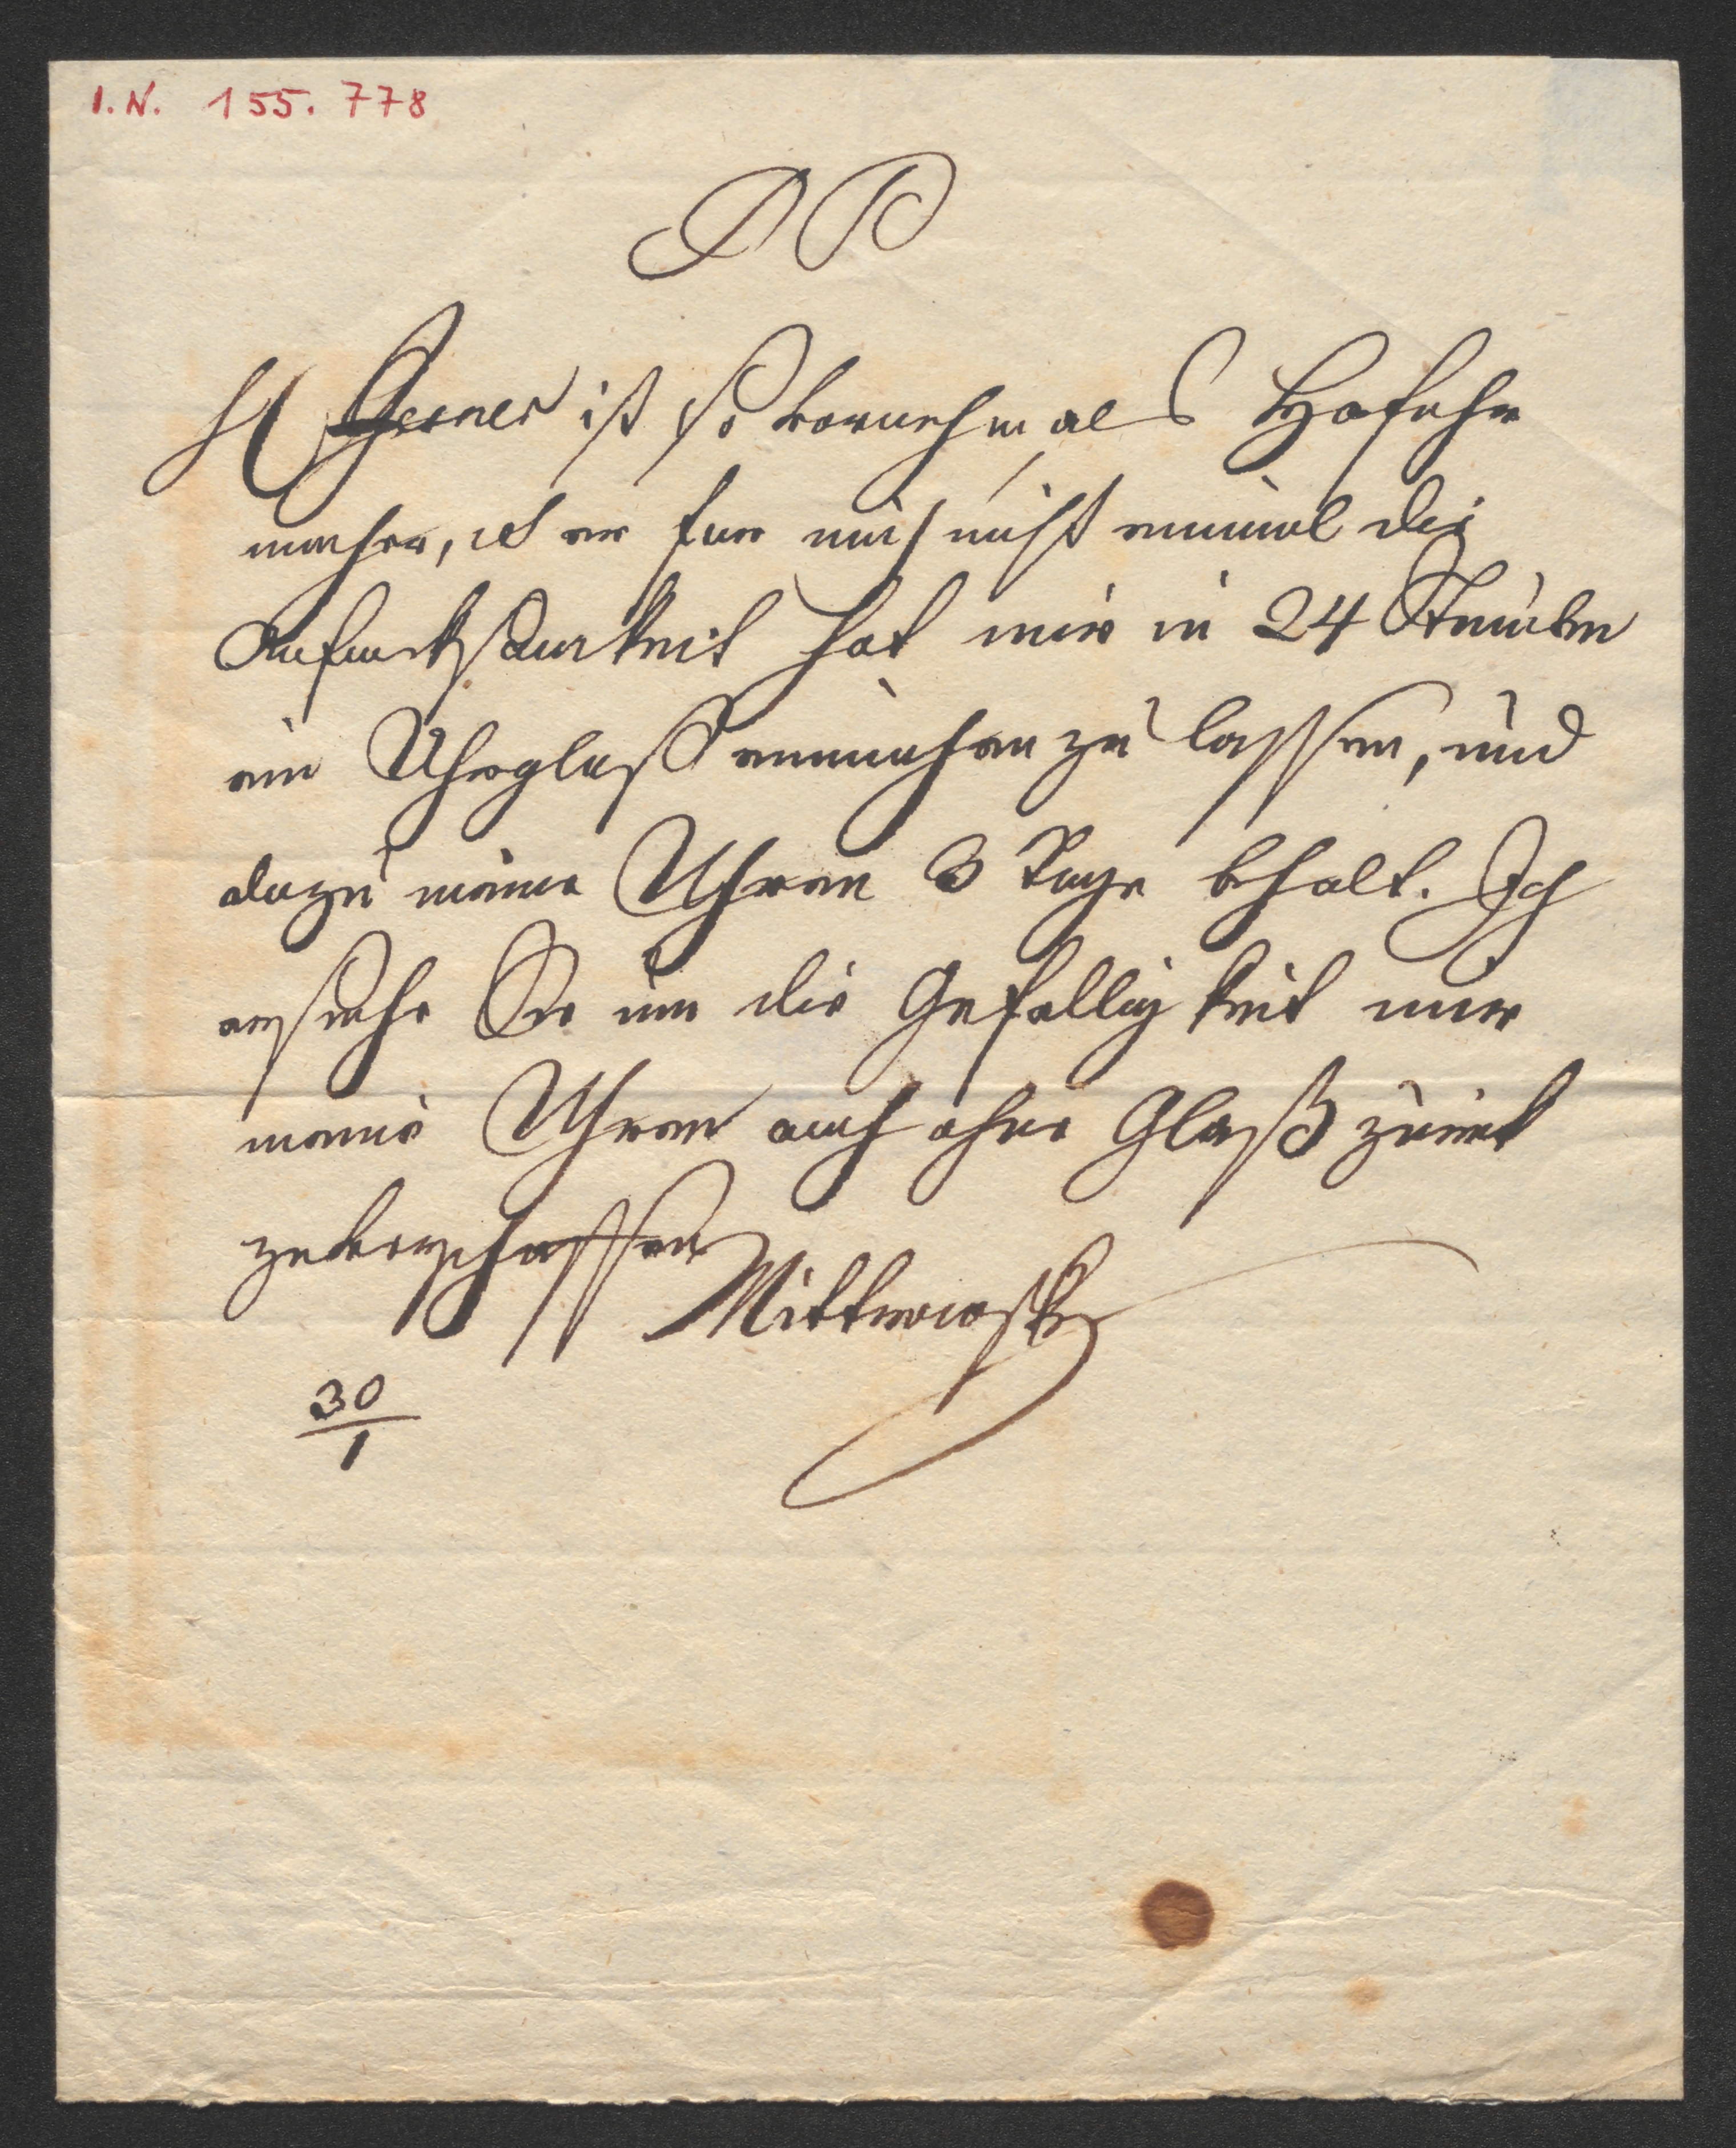 I.N. 155.778
PP
H Gerner ist so vornehm als Hofuhr
macher, daß er fur mich nicht einmal die
Aufmerksamkeit hat mir in 24 Stunden
ein Uhrglaß einmachen zu lassen, und
dazu meine Uhren 3 Tage bhalt. Ich
ersuche Sie um die Gefalligkeit mir
meine Uhren auch ohne Glaß zurük
zu verschaffen
Mittrowsky
30/1